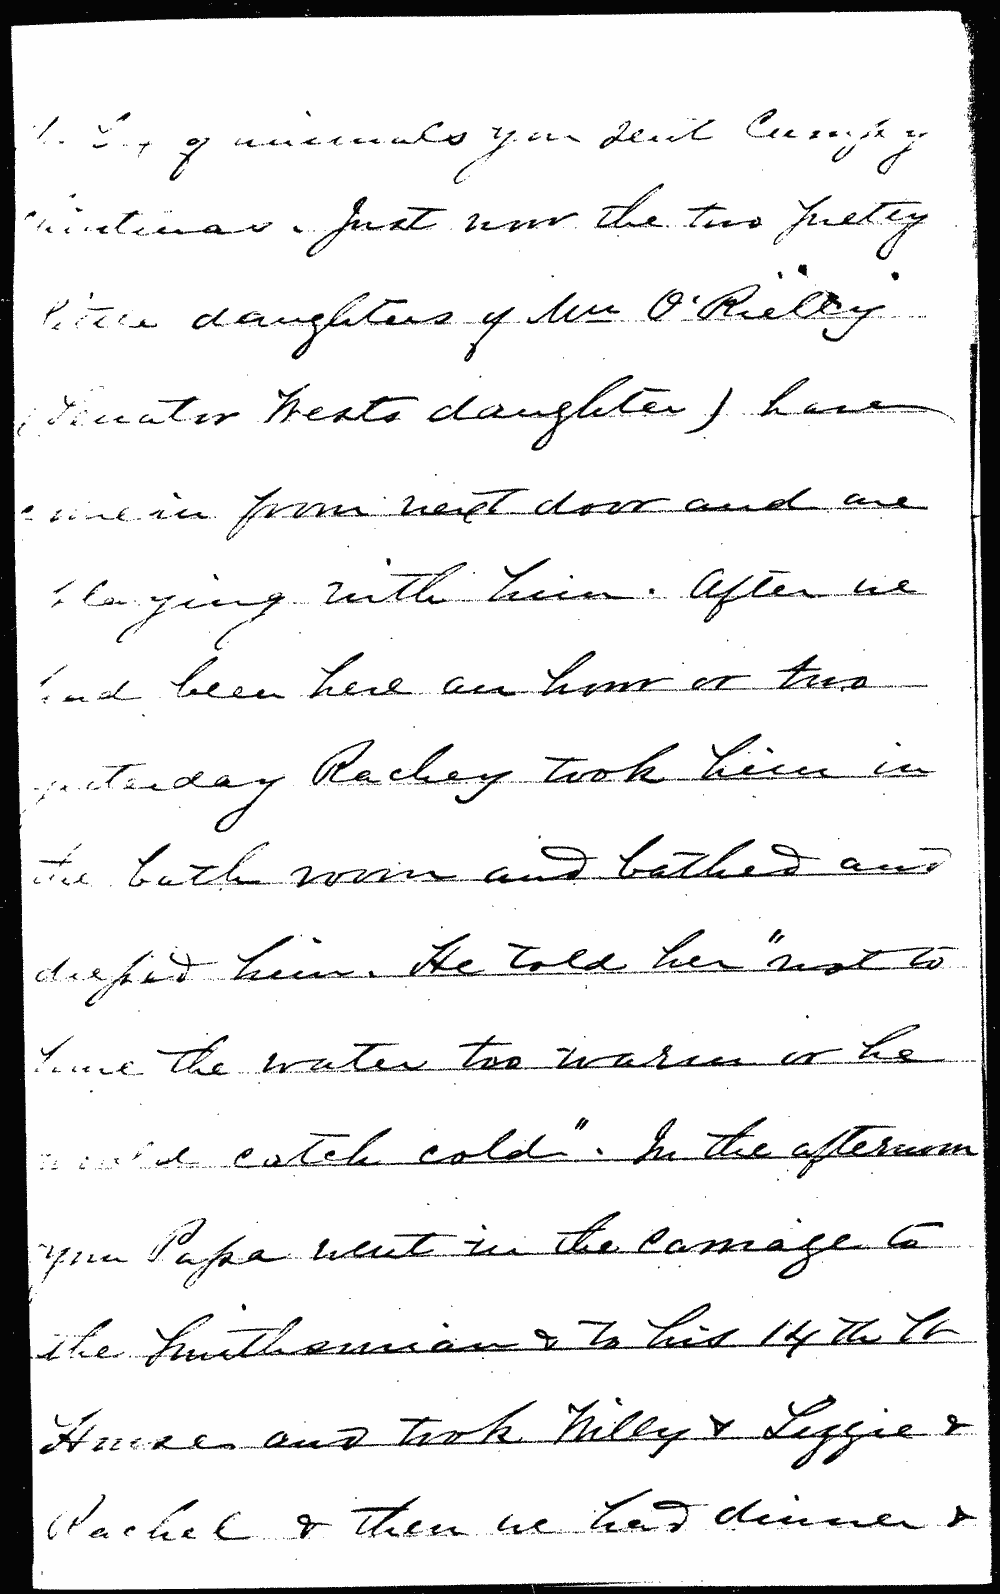 of animals you sent
Just now the two pretty
little daughters of Mrs O'Rielly
(Senator Wests daughter) have
come in from next door and are
playing with him. After we
had been here an hour or two
yesterday Rachey took him in
the bath room and bathed and
him. He told her "not to
have the water too warm or he
would catch cold". In the afternoon
your Papa went in the carriage to
the Smithsonian & to his 14th St
Houses and took Willy & Lizzie &
Rachel & then we had dinner &